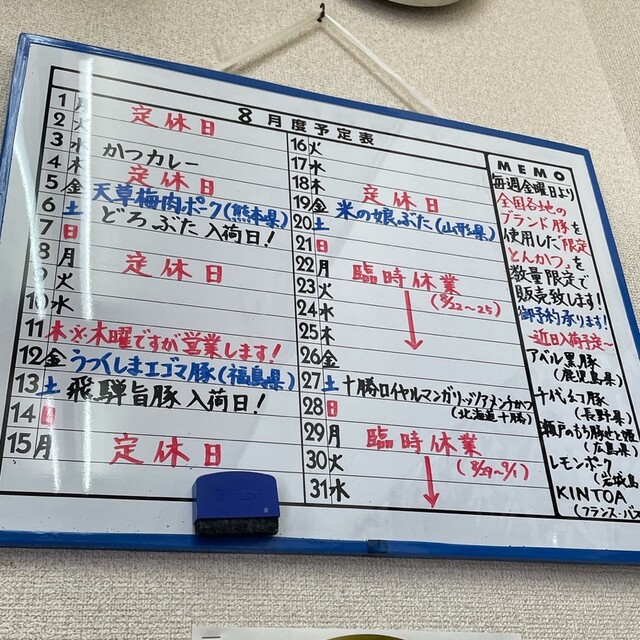 8月度予定表
1 月
2 火 定休日
3 水 かつカレー
4 木 定休日
5 金 天草梅肉ポーク(熊本県)
6 土 どろぶた入荷日!
7 日
8 月 定休日
9 火
10 水
11 木 ※木曜ですが営業します!
12 金 うつくしまエゴマ豚(福島県)
13 土 飛騨旨豚入荷日!
14 日
15 月 定休日
16 火
17 水
18 木 定休日
19 金 米の娘ぶた(山形県)
20 土
21 日
22 月 臨時休業
23 火 (8/22~25)
24 水
25 木
26 金
27 土 十勝ロイヤルマンガリッツァメンチカツ
28 日 (北海道十勝)
29 月 臨時休業
30 火 (8/29~9/1)
31 水
MEMO
毎週金曜日より
全国各地の
ブランド豚を
使用した「限定
とんかつ」を
数量限定で
販売致します!
御予約承ります!
~近日入荷予定~
アベル黒豚
(鹿児島県)
千代幻豚
(長野県)
瀬戸のもち豚せと姫
(広島県)
レモンポーク
(岩城島
KINTOA
(フランス・バス